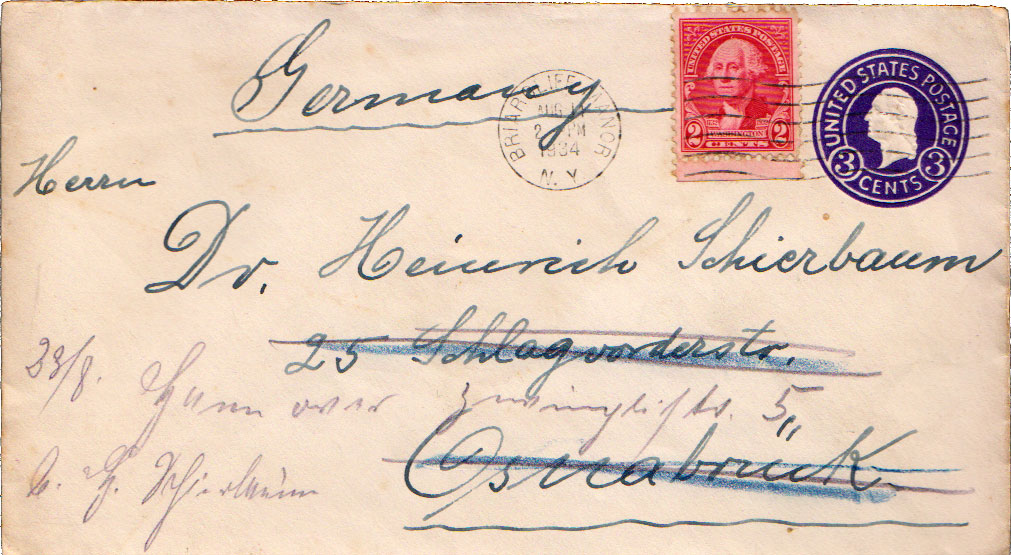 Germany
UNITED STATES POSTAGE
2 WASHINGTON 2
CENTS
BRIARCLIFF MANOR
AUG
2 PM
1934
N.Y.
UNITED STATES POSTAGE
3 CENTS 3
Herrn
Dr. Heinrich Schierbaum
25 Schlagvorderstr.
23/8. Hannover Zwinglistr. 5"
Osnabrück
b. H. Schierbaum